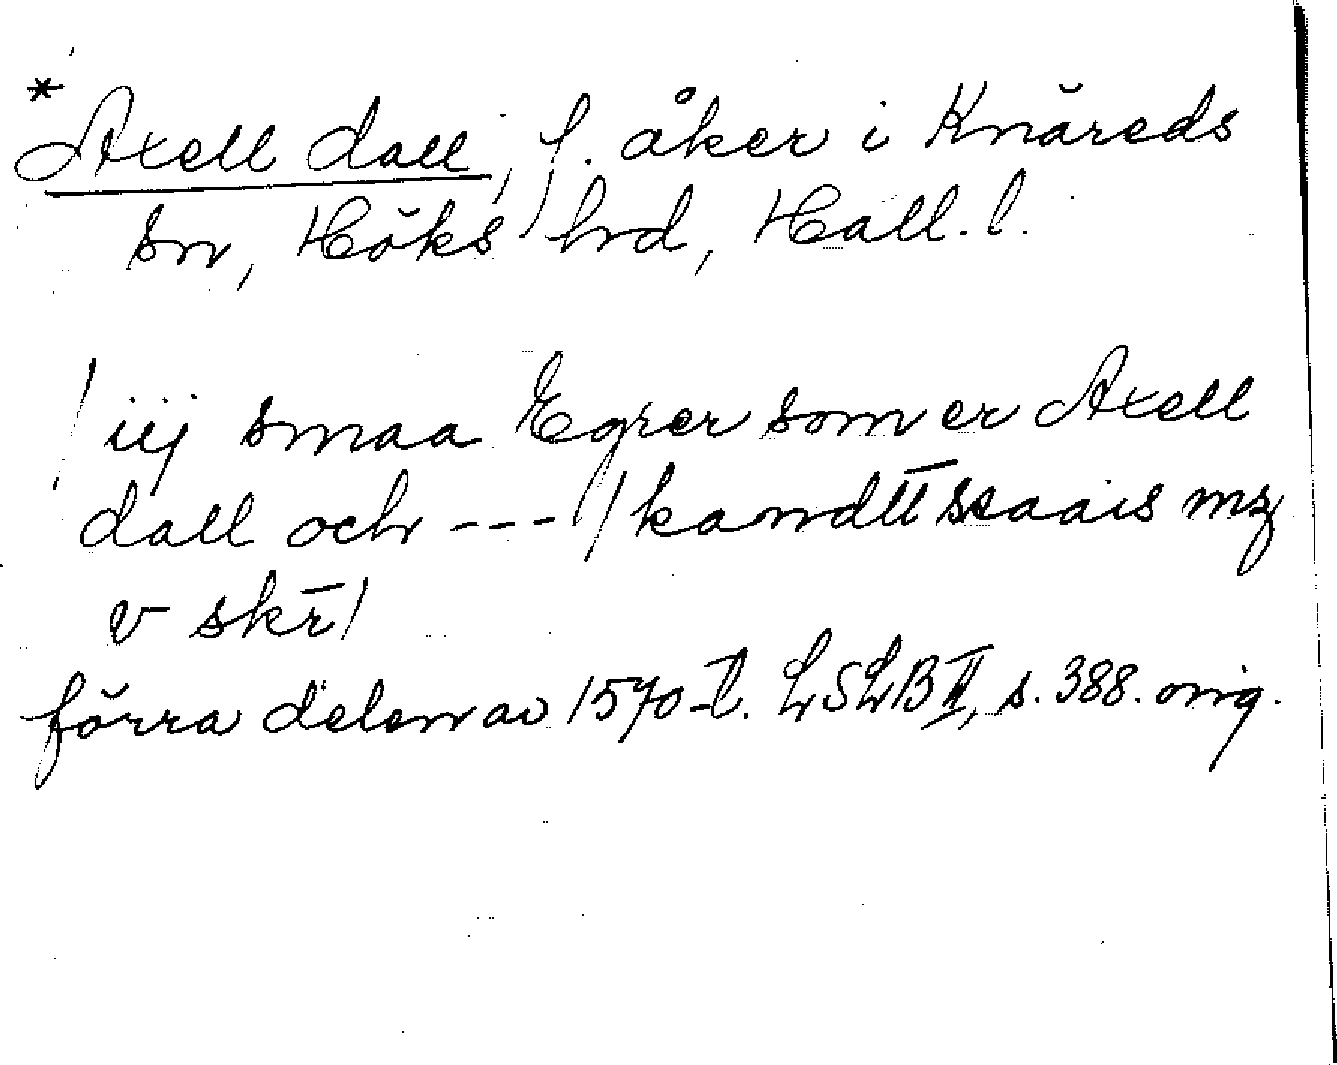 *Axell dall, f. åker i Knäreds
sn, Höks hrd, Hall. l.
/iij smaa Egrer som er Axell
dall och ---/ kandtt staais mz
v skr̄/
förra delen av 1570-t. LSLB II, s. 388. orig.